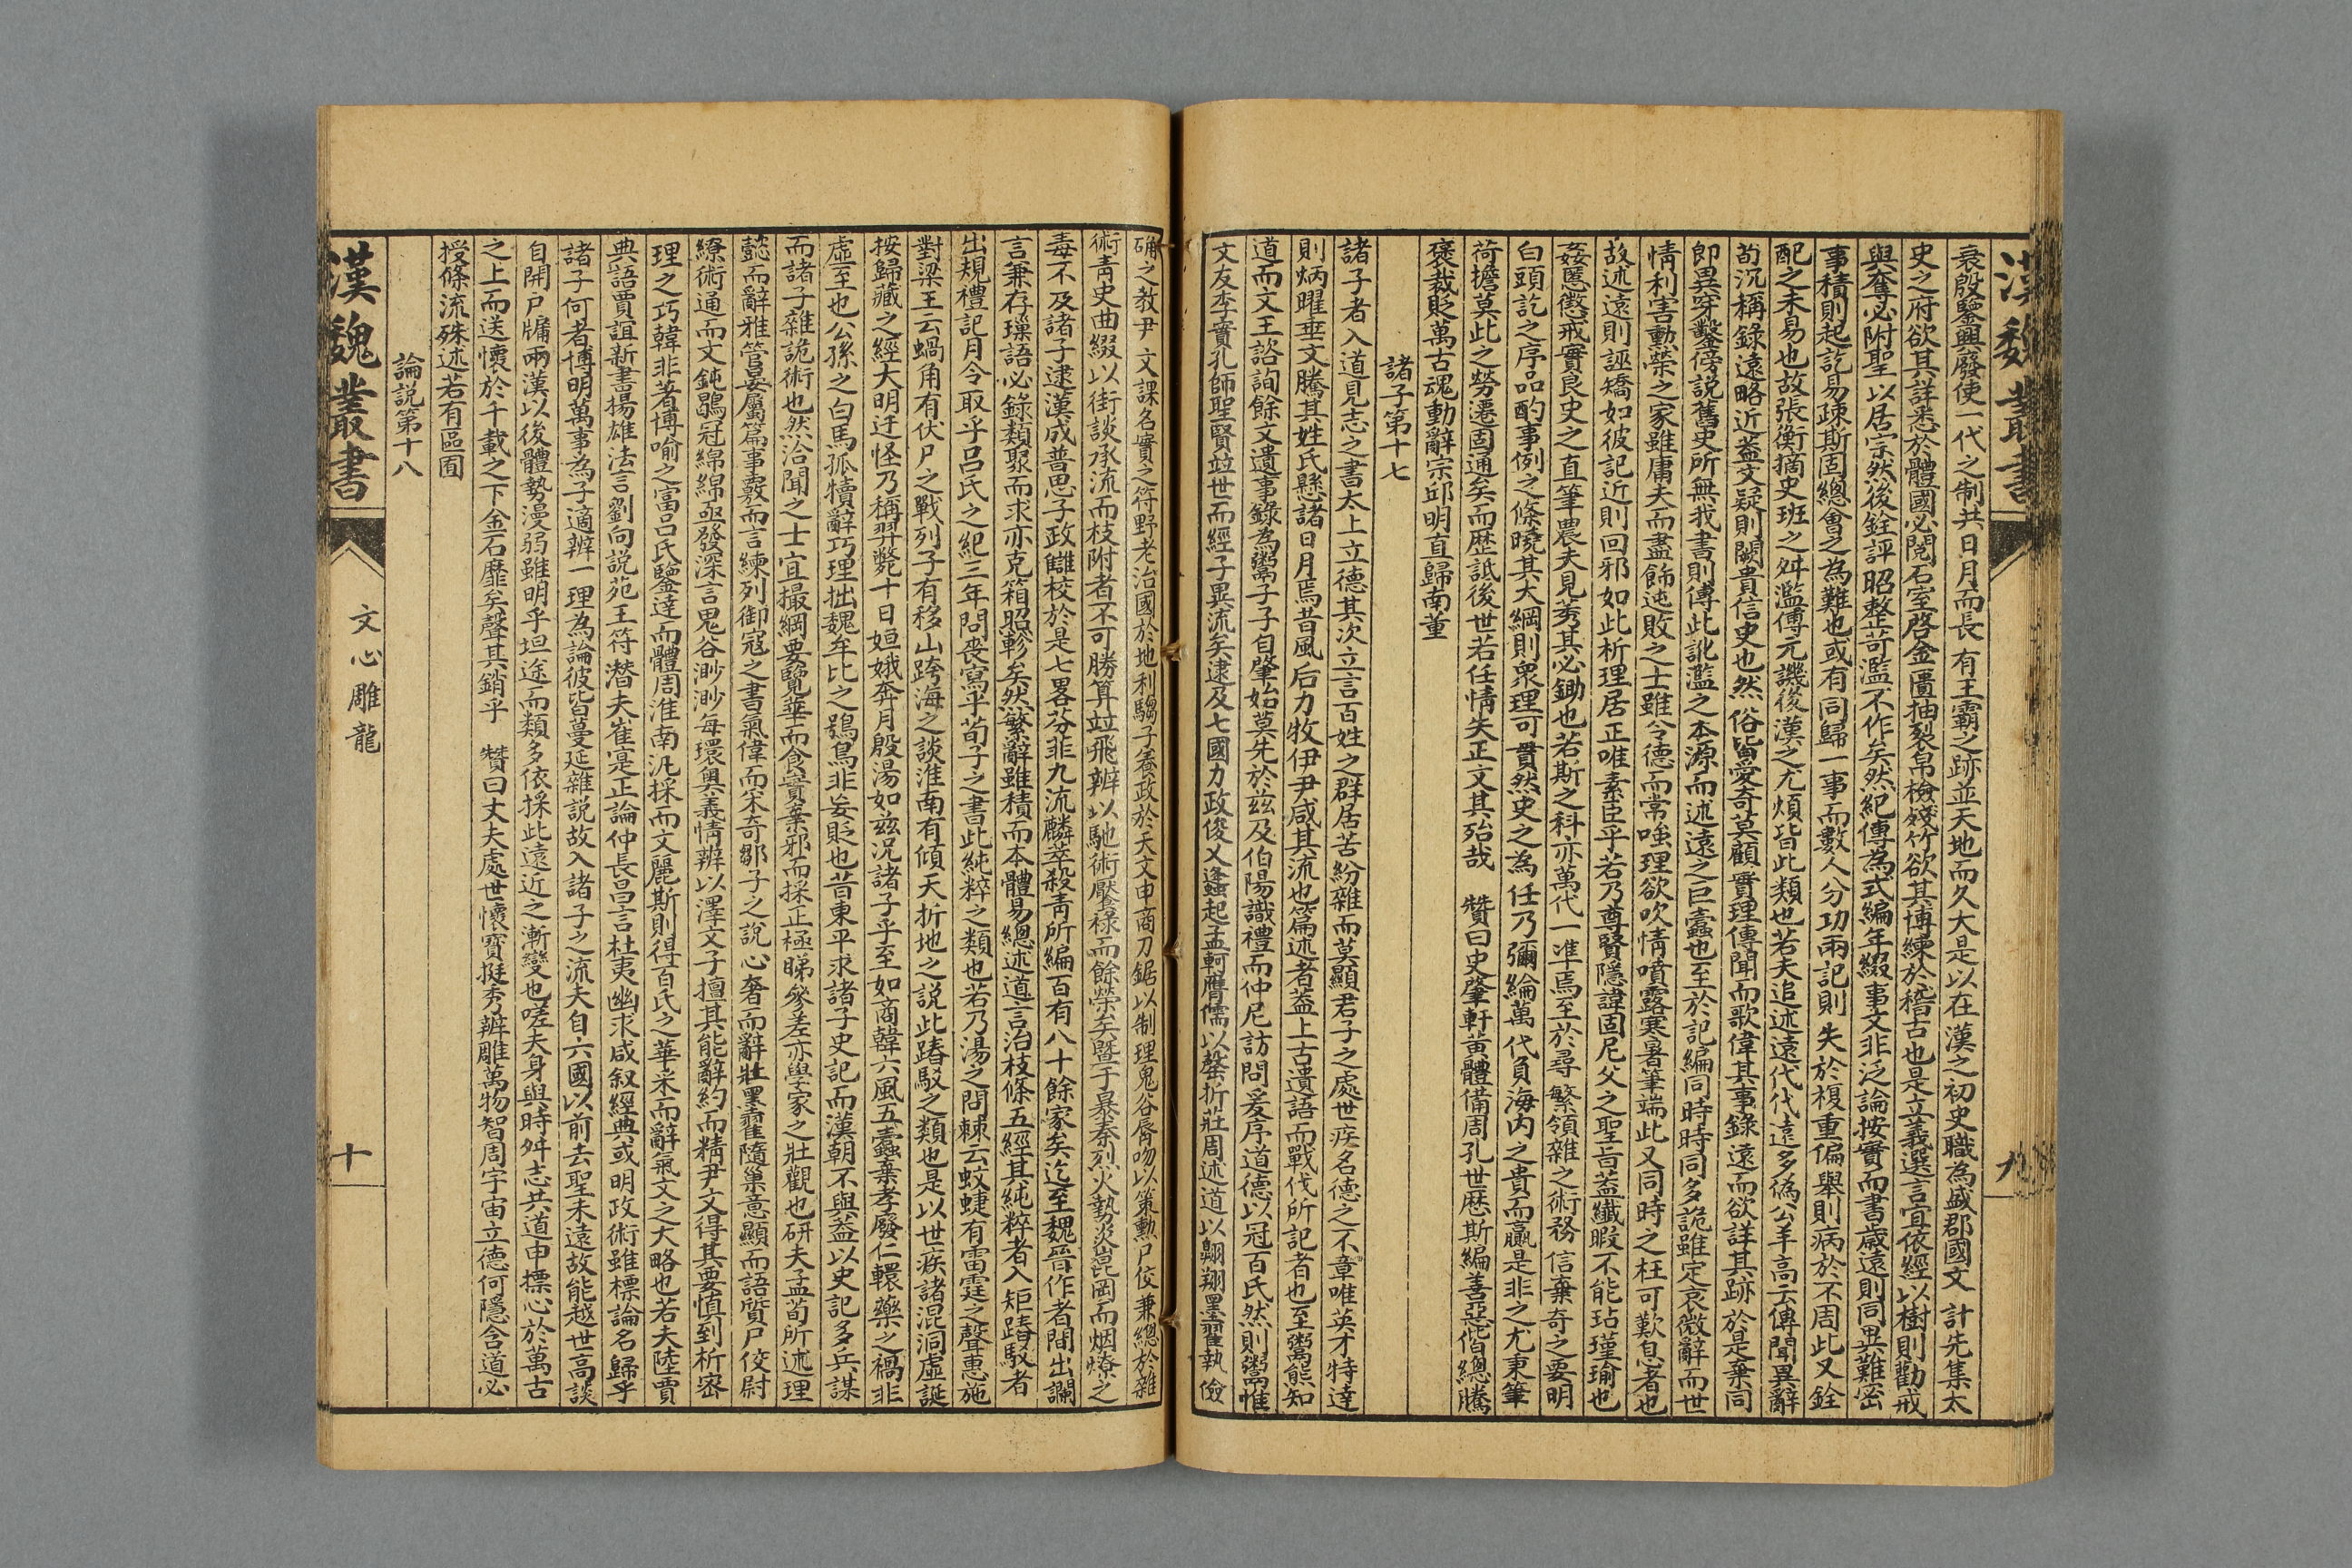 漢魏叢書
九
衰殷鑒興廢使一代之制共日月而長有王霸之跡並天地而久大是以在漢之初史職為盛郡國文計先集太
史之府欲其詳悉於體國必閱石室啓金匱抽裂帛檢殘竹欲其博練於稽古也是立義選言宜依經以樹則勸戒
與奪必附聖以居宗然後銓評昭整苛濫不作矣然紀傳為式編年綴事文非泛論按實而書歲遠則同異難密
事積則起訖易疎斯固總會之為難也或有同歸一事而數人分功兩記則失於複重偏舉則病於不周此又銓
配之未易也故張衡摘史班之舛濫傅元譏後漢之尤煩皆此類也若夫追述遠代代遠多偽公羊高云傳聞異辭
荀況稱錄遠略近蓋文疑則闕貴信史也然俗皆愛奇莫顧實理傳聞而欲偉其事錄遠而欲詳其跡於是棄同
即異穿鑿傍說舊史所無我書則傳此訛濫之本源而述遠之巨蠹也至於記編同時時同多詭雖定哀微辭而世
情利害勳榮之家雖庸夫而盡飾迍敗之士雖令德而常嗤理欲吹情噴露寒暑筆端此又同時之枉可歎息者也
故述遠則誣矯如彼記近則回邪如此析理居正唯素臣乎若乃尊賢隱諱固尼父之聖旨蓋纖瑕不能玷瑾瑜也
姦慝懲戒實良史之直筆農夫見莠其必鋤也若斯之科亦萬代一準焉至於尋繁領雜之術務信棄奇之要明
白頭訖之序品酌事例之條曉其大綱則衆理可貫然史之為任乃彌綸萬代負海內之責而贏是非之尤秉筆
荷擔莫此之勞遷固通矣而歷詆後世若任情失正文其殆哉　贊曰史肇軒黃體備周孔世歷斯編善惡偕總騰
褒裁貶萬古魂動辭宗邱明直歸南董
諸子第十七
諸子者入道見志之書太上立德其次立言百姓之群居苦紛雜而莫顯君子之處世疾名德之不章唯英才特達
則炳曜垂文騰其姓氏懸諸日月焉昔風后力牧伊尹咸其流也篇述者蓋上古遺語而戰伐所記者也至鬻熊知
道而文王諮詢餘文遺事錄為鬻子子自肇始莫先於茲及伯陽識禮而仲尼訪問爰序道德以冠百氏然則鬻惟
文友李實孔師聖賢並世而經子異流矣逮及七國力政俊乂蠭起孟軻膺儒以磬折莊周述道以翱翔墨翟執儉
确之教尹文課名實之符野老治國於地利騶子養政於天文申商刀鋸以制理鬼谷脣吻以策勳尸佼兼總於雜
術青史曲綴以街談承流而枝附者不可勝算並飛辨以馳術饜祿而餘榮矣暨于暴秦烈火勢炎崑岡而烟燎之
毒不及諸子逮漢成普思子政讎校於是七畧芬菲九流麟萃殺青所編百有八十餘家矣迄至魏晉作者間出讕
言兼存璅語必錄類聚而求亦充箱照軫矣然繁辭雖積而本體易總述道言治枝條五經其純粹者入矩踳駁者
出規禮記月令取乎呂氏之紀三年問喪寫乎荀子之書此純粹之類也若乃湯之問棘云蚊睫有雷霆之聲惠施
對梁王云蝸角有伏尸之戰列子有移山跨海之談淮南有傾天折地之說此踳駁之類也是以世疾諸混洞虛誕
按歸藏之經大明迂怪乃稱羿斃十日姮娥奔月殷湯如茲況諸子乎至如商韓六風五蠹棄孝廢仁轘藥之禍非
虛至也公孫之白馬孤犢辭巧理拙魏牟比之鴞鳥非妄貶也昔東平求諸子史記而漢朝不與蓋以史記多兵謀
而諸子雜詭術也然洽聞之士宜撮綱要覽華而食實棄邪而採正極睇參差亦學家之壯觀也研夫孟荀所述理
懿而辭雅管晏屬篇事覈而言練列御寇之書氣偉而采奇鄒子之說心奢而辭壯墨翟隨巢意顯而語質尸佼尉
繚術通而文鈍鶡冠綿綿亟發深言鬼谷渺渺每環奧義情辨以澤文子擅其能辭約而精尹文得其要慎到析密
理之巧韓非著博喻之富呂氏鑒遠而體周淮南汎採而文麗斯則得百氏之華采而辭氣文之大略也若夫陸賈
典語賈誼新書揚雄法言劉向說苑王符潛夫崔寔正論仲長昌言杜夷幽求咸叙經典或明政術雖標論名歸乎
諸子何者博明萬事為子適辨一理為論彼皆蔓延雜說故入諸子之流夫自六國以前去聖未遠故能越世高談
自開戶牖兩漢以後體勢漫弱雖明乎坦途而類多依採此遠近之漸變也嗟夫身與時舛志共道申摽心於萬古
之上而送懷於千載之下金石靡矣聲其銷乎　贊曰丈夫處世懷寶挺秀辨雕萬物智周宇宙立德何隱含道必
授條流殊述若有區囿
論說第十八
漢魏叢書
文心雕龍
十